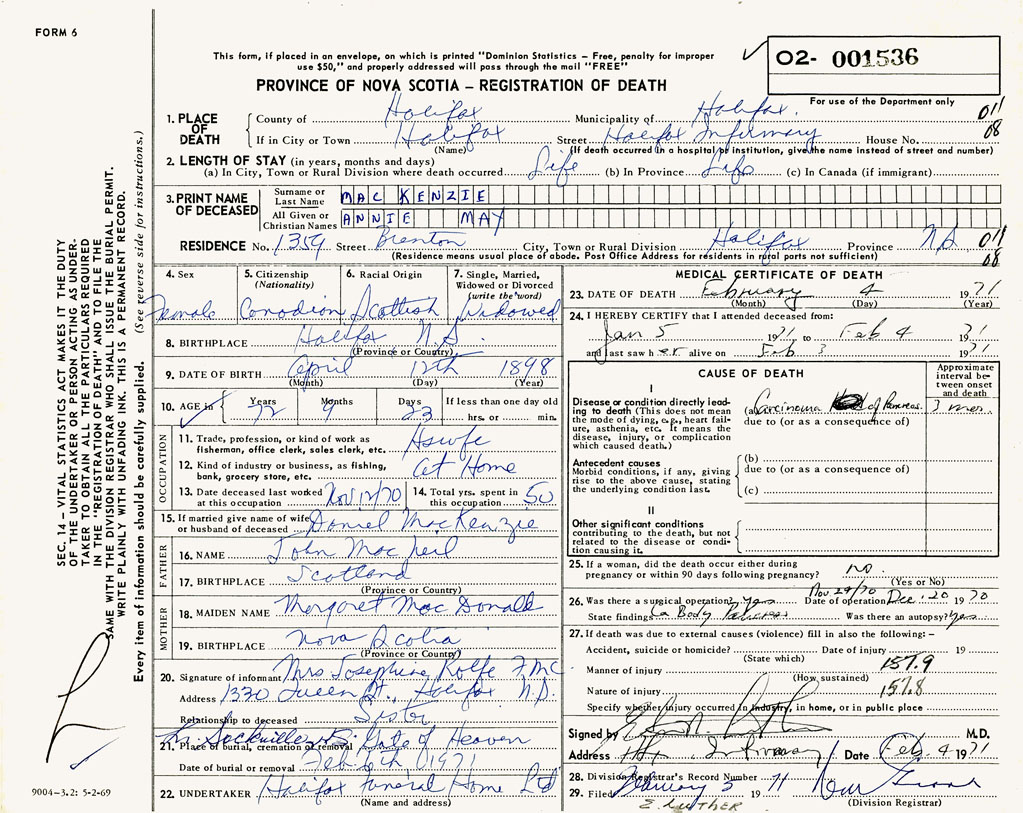 FORM 6
This form, if placed in an envelope, on which is printed "Dominion Statistics – Free, penalty for improper
use $50," and properly addressed will pass through the mail "FREE"
02- 001536
PROVINCE OF NOVA SCOTIA – REGISTRATION OF DEATH
For use of the Department only
1. PLACE OF DEATH
County of Halifax Municipality of Halifax. 011
If in City or Town Halifax Street Halifax Infirmary House No. 08
(Name) (If death occurred in a hospital or institution, give the name instead of street and number)
2. LENGTH OF STAY (in years, months and days)
(a) In City, Town or Rural Division where death occurred Life (b) In Province Life (c) In Canada (if immigrant)
3. PRINT NAME OF DECEASED
Surname or Last Name MAC KENZIE
All Given or Christian Names ANNIE MAY
RESIDENCE No. 1359 Street Brenton City, Town or Rural Division Halifax Province N.S 011
(Residence means usual place of abode. Post Office Address for residents in rural parts not sufficient) 08
4. Sex 5. Citizenship (Nationality) 6. Racial Origin 7. Single, Married, Widowed or Divorced (write the word)
Female Canadian Scottish Widowed
8. BIRTHPLACE Halifax N.S.
(Province or Country)
9. DATE OF BIRTH April 12th 1898
(Month) (Day) (Year)
10. AGE in Years Months Days If less than one day old
72 9 23 hrs. or min.
OCCUPATION
11. Trade, profession, or kind of work as
fisherman, office clerk, sales clerk, etc. Hswfe
12. Kind of industry or business, as fishing,
bank, grocery store, etc. At Home
13. Date deceased last worked at this occupation Nov 12/70 14. Total yrs. spent in this occupation 50
15. If married give name of wife or husband of deceased Daniel MacKenzie
FATHER
16. NAME John MacNeil
17. BIRTHPLACE Scotland
(Province or Country)
MOTHER
18. MAIDEN NAME Margaret MacDonald
19. BIRTHPLACE Nova Scotia
(Province or Country)
20. Signature of informant Mrs Josephine Rolfe
Address 1330 Queen St., Halifax N.S.
Relationship to deceased Sister
21. Place of burial, cremation or removal Sackville Gate of Heaven
Date of burial or removal Feb 6th 1971
22. UNDERTAKER Halifax Funeral Home Ltd
(Name and address)
MEDICAL CERTIFICATE OF DEATH
23. DATE OF DEATH February 4 1971
(Month) (Day) (Year)
24. I HEREBY CERTIFY that I attended deceased from:
Jan 5 1971 to Feb 4 71
and last saw her alive on Feb 3 1971
CAUSE OF DEATH
Approximate interval between onset and death
I
Disease or condition directly leading to death (This does not mean the mode of dying, e.g., heart failure, asthenia, etc. It means the disease, injury, or complication which caused death.)
(a) Carcinoma of Pancreas. 3 mos.
due to (or as a consequence of)
Antecedent causes
Morbid conditions, if any, giving rise to the above cause, stating the underlying condition last.
(b)
due to (or as a consequence of)
(c)
II
Other significant conditions
contributing to the death, but not related to the disease or condition causing it.
25. If a woman, did the death occur either during
pregnancy or within 90 days following pregnancy? no.
(Yes or No)
Nov 24/70
26. Was there a surgical operation? yes Date of operation Dec. 20 1970
State findings Ca Body Pancreas Was there an autopsy? yes
27. If death was due to external causes (violence) fill in also the following: –
Accident, suicide or homicide? Date of injury 19
(State which)
Manner of injury 157.9
(How sustained)
Nature of injury 157.8
Specify whether injury occurred in industry, in home, or in public place
Signed by M.D.
Address Hfx Infirmary Date Feb. 4 1971
28. Division Registrar's Record Number
29. Filed February 5 1971
(Division Registrar)
E. LUTHER
SEC. 14 – VITAL STATISTICS ACT MAKES IT THE DUTY
OF THE UNDERTAKER OR PERSON ACTING AS UNDER-
TAKER TO OBTAIN ALL THE PARTICULARS REQUIRED
IN THE "REGISTRATION OF DEATH" AND TO FILE THE
SAME WITH THE DIVISION REGISTRAR WHO SHALL ISSUE THE BURIAL PERMIT.
WRITE PLAINLY WITH UNFADING INK. THIS IS A PERMANENT RECORD.
Every item of information should be carefully supplied. (See reverse side for instructions.)
9004-3.2: 5-2-69